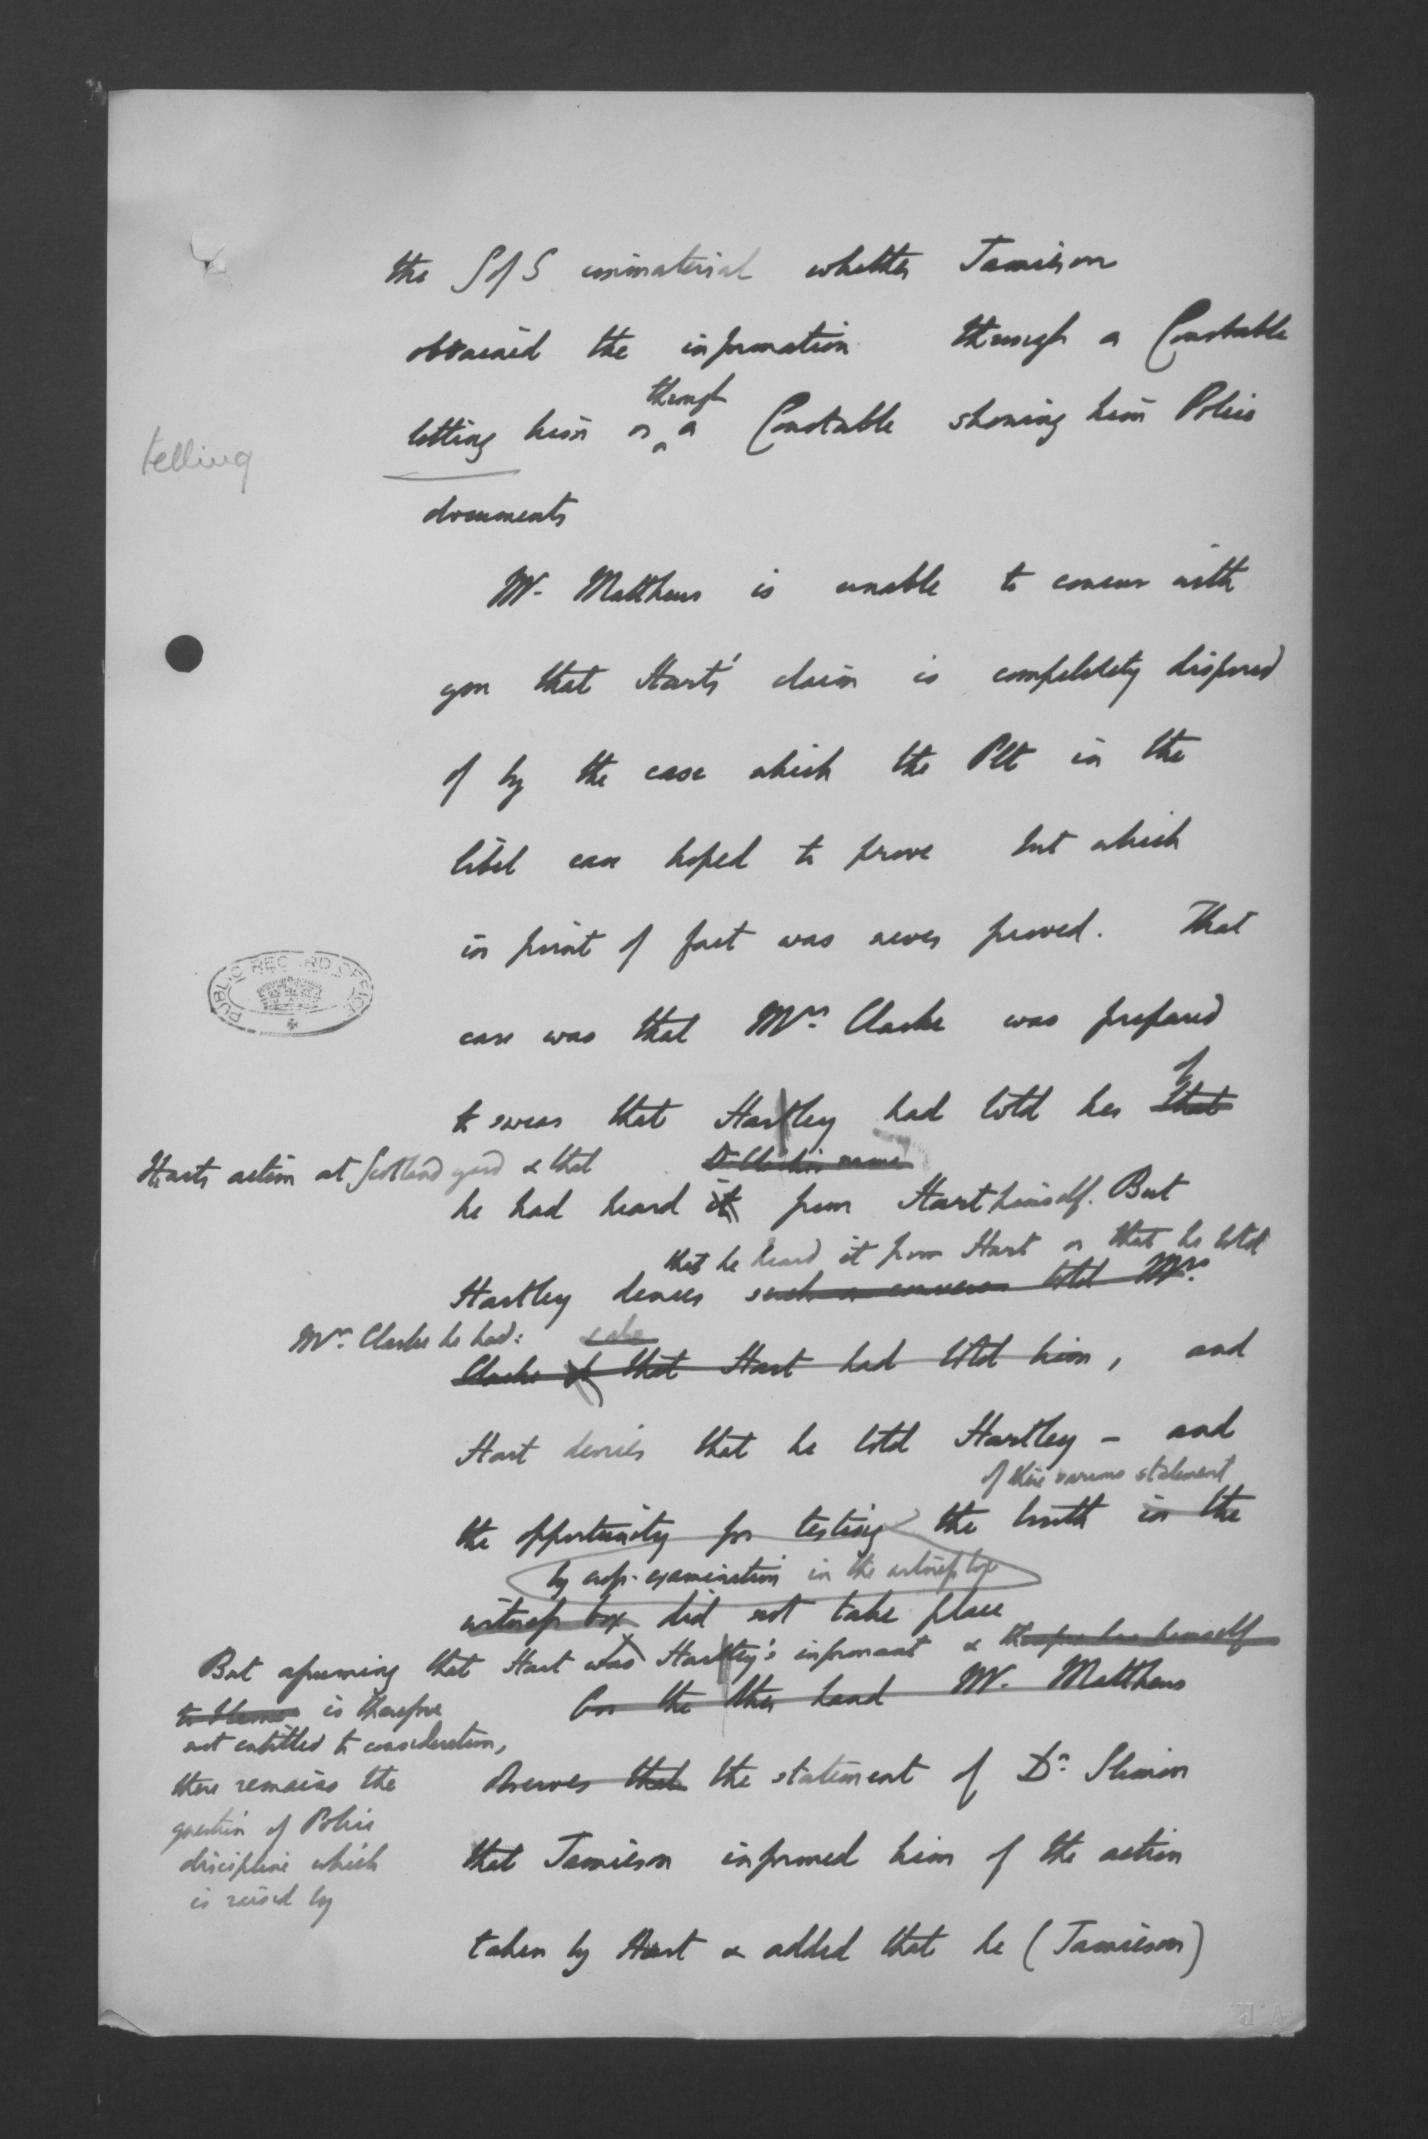 the S of S immaterial whether Jamieson
obtained the information through a Constable
through
letting him or a Constable showing him Police
telling
documents
Mr. Matthews is unable to concur with
you that Harts' claim is completely disposed
of by the case which the Plt in the
libel case hoped to prove but which
in point of fact was never proved. That
PUBLIC RECORD OFFICE
case was that Mrs. Clarke was prepared
of
to swear that Hartley had told her that
Harts action at Scotland yard & that
Dr. Clarke's name
he had heard it from Hart himself. But
that he heard it from Hart or that he told
Hartley denies such a told Mrs.
Mrs. Clarke he had:
Clarke that Hart had told him, and
Hart denies that he told Hartley - and
of their various statement
the opportunity for testing the truth in the
by cross-examination in the witness box
witness box did not take place
But assuming that Hart was Hartley's informant & therefore has himself
to blame is therefore
On the other hand Mr. Matthews
not entitled to consideration,
there remains the
observes that the statement of Dr. Slimon
question of Police
discipline which
that Jamieson informed him of the action
is raised by
taken by Hart & added that he (Jamieson)
V. R.